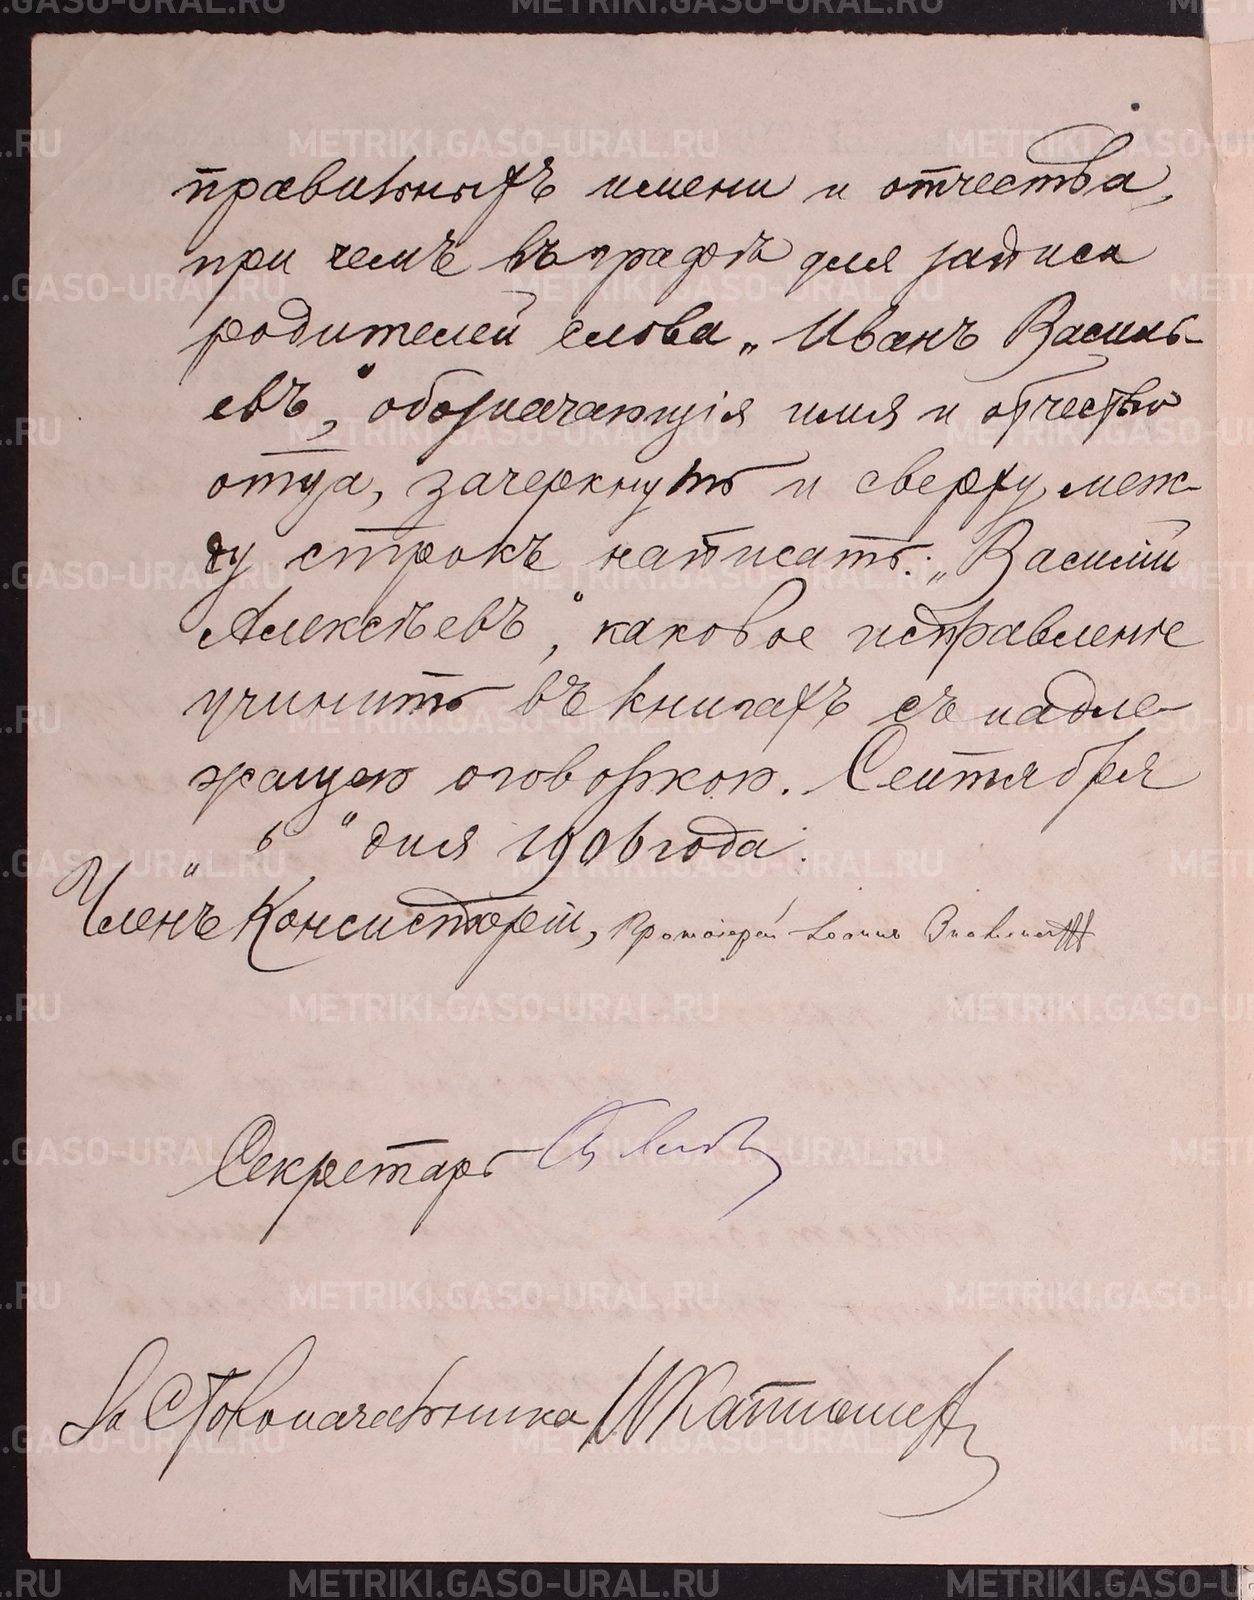 правильныхъ имени и отчества,
при чемъ въ графѣ для записи
родителей слова „Иванъ Василь-
евъ", обозначающія имя и отчество
отца, зачеркнуть и сверху меж-
ду строкъ написать: „Василій
Алексѣевъ", каковое исправленіе
учинить въ книгахъ съ надле-
жащею оговоркою. Сентября
„ 6 " дня 1906 года.
Членъ Консисторіи, Протоіерей Іоаннъ
Секретарь
За Столоначальника
METRIKI.GASO-URAL.RU